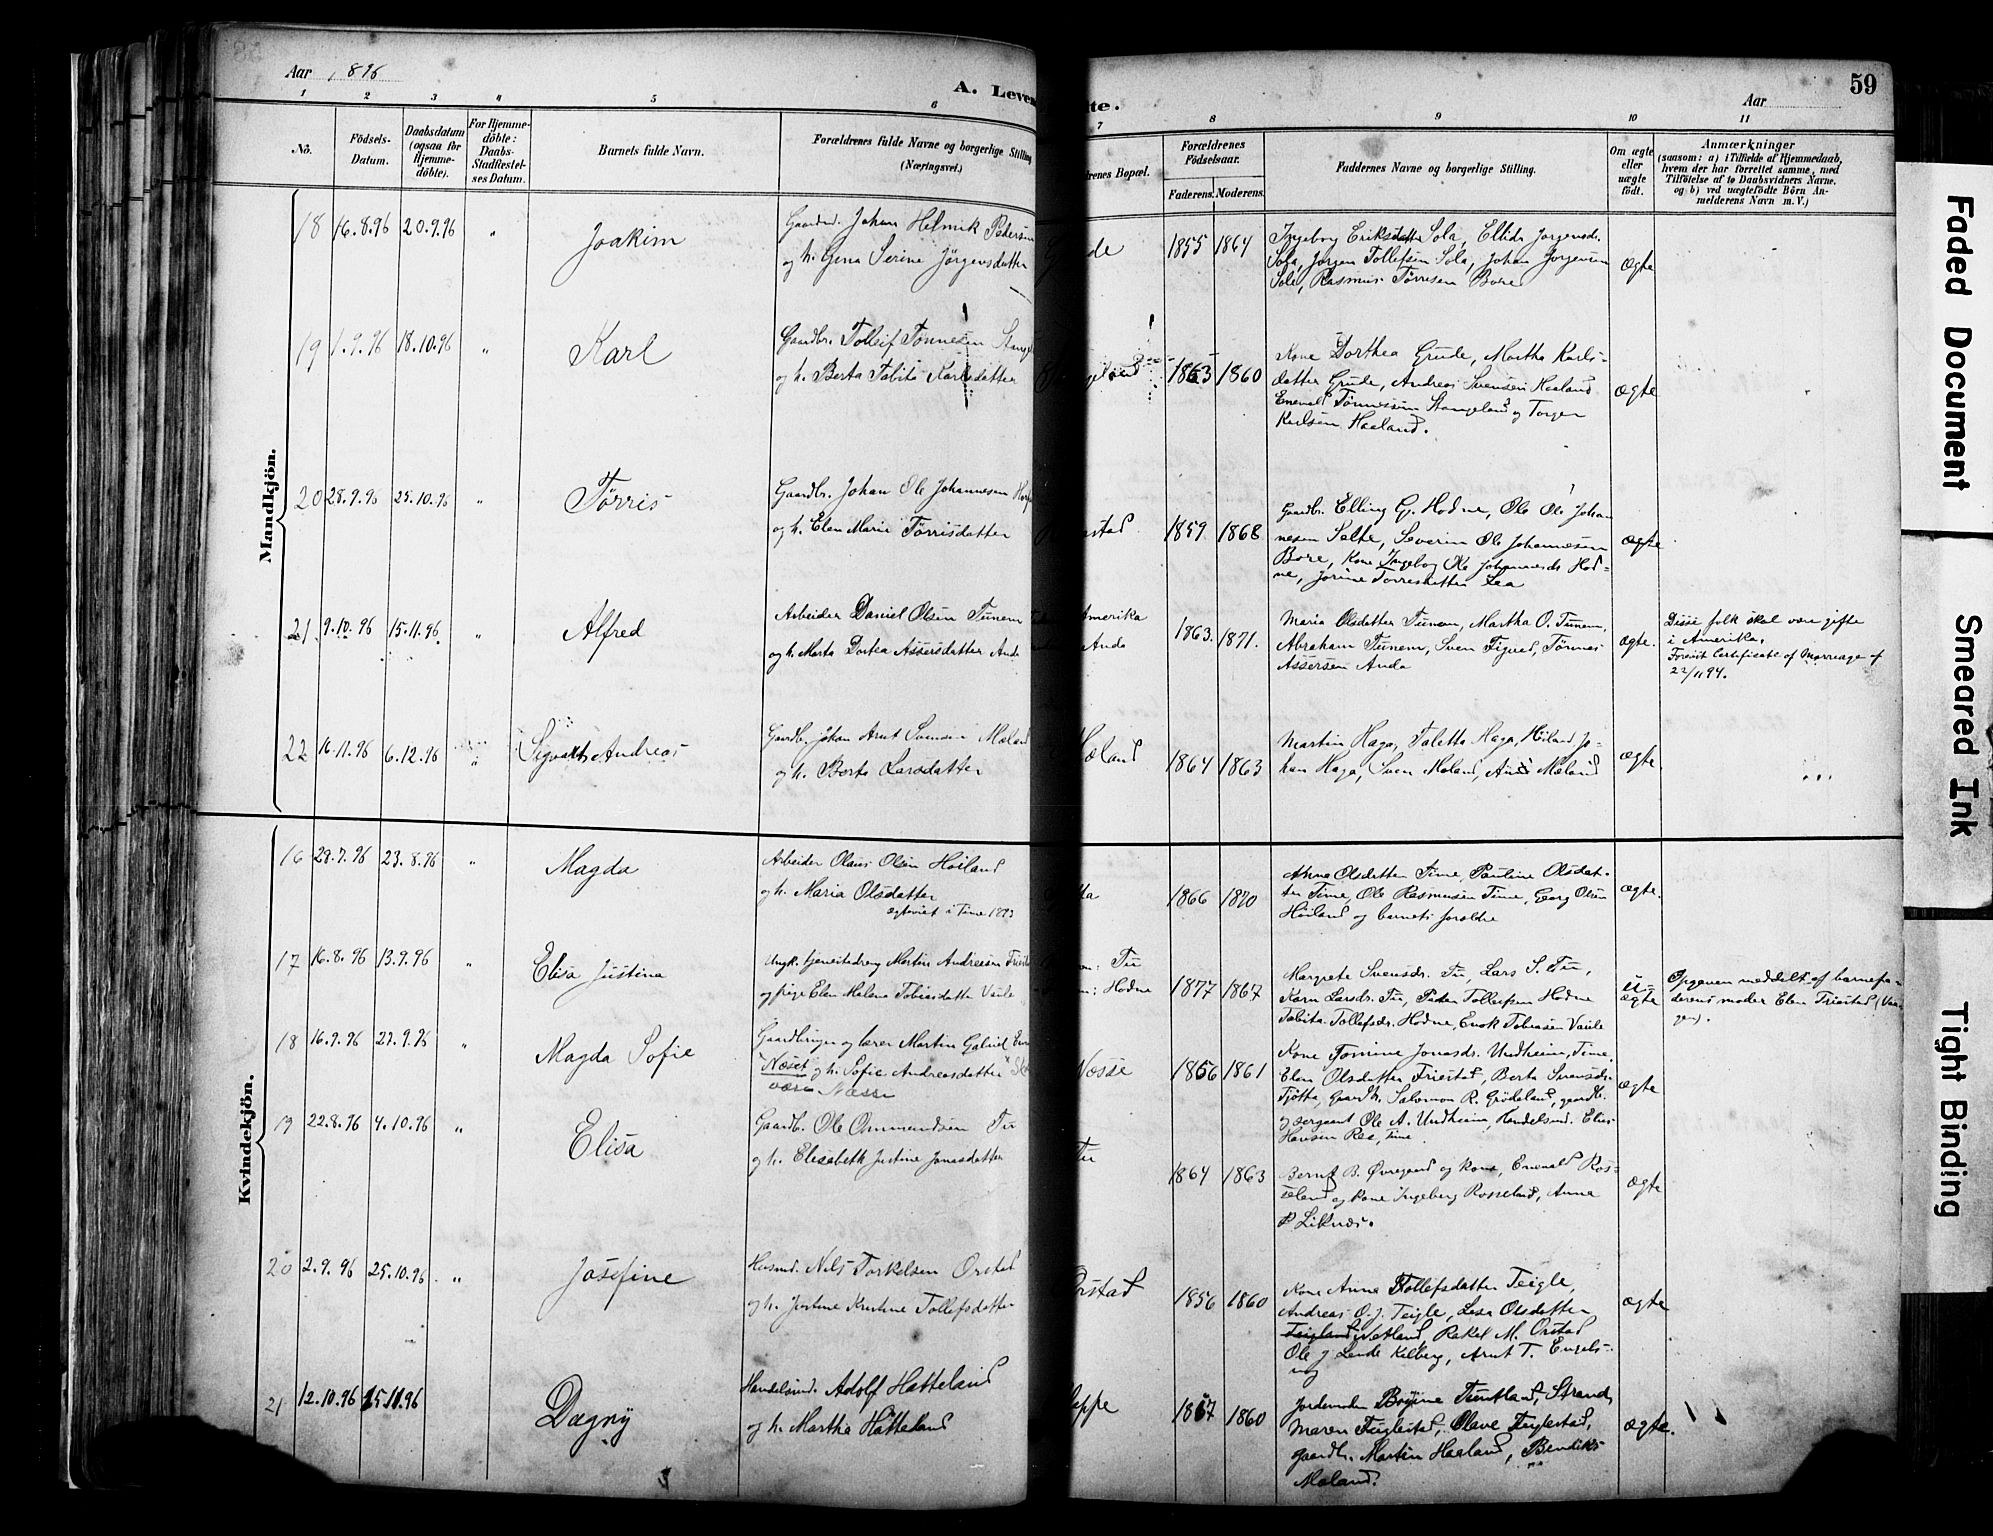 Aar 1896
A. Leven
te.
Aar
59
1 2 3 4 5 6 7 8 9 10 11
No.
Födsels-
Datum.
Daabsdatum
(ogsaa for
Hjemme-
döbte).
For Hjemme-
döbte:
Daabs-
Stadfæstel-
ses Datum.
Barnets fulde Navn.
Forældrenes fulde Navne og borgerlige Stilling
(Næringsvei.)
drenes Bopæl.
Forældrenes
Födselsaar.
Faderens. Moderens.
Faddernes Navne og borgerlige Stilling.
Om ægte
eller
uægte
födt.
Anmærkninger
(saasom: a) i Tilfælde af Hjemmedaab,
hvem der har forrettet samme, med
Tilföielse af to Daabsvidners Navne,
og b) ved uægtefödte Börn An-
melderens Navn m. V.)
Mandkjön.
18 16.8.96 20.9.96 " Joakim
Gaardm. Johan Helmik Pedersen
og h. Gina Serine Jørgensdatter
de
1855 1864
Ingeborg Eriksdatter Sola, Ellida Jorgensdr.
Sola, Jorgen Tollefsen Sola, Johan Jorgensen
Sole, Rasmus Tørresen Bore
ægte
19 1.9.96 18.10.96 " Karl
Gaardbr. Tollef Tønnesen Stange
og h. Berta Tabita Karlsdatter
geland
1863 1860
Kone Dorthea Grude, Martha Karls-
datter Grude, Andreas Svensen Haaland
Enevald Tønnessen Stangeland og Torger
Karlsen Haaland.
ægte
20 28.9.96 25.10.96 " Tørris
Gaardbr. Johan Ole Johannesen
og h. Elen Marie Tørrisdatter
stad
1859 1868
Gaardbr. Elling G. Hodne, Ole Ols Johan
nesen Salte, Severin Ole Johannesen
Bore, Kone Ingeborg Ole Johannesds Hod-
ne, Jorine Tørresdatter Lea
ægte
21. 9.10.96 15.11.96 " Alfred
Arbeider Daniel Olsen Tunem
og h. Marta Dortea Assersdatter Anda
Amerika
Anda
1863. 1871.
Maria Olsdatter Tunem, Martha O. Tunem,
Abraham Tunem, Sven Figved, Tønnes
Assersen Anda
ægte.
Disse folk skal være gifte
i Amerika.
Forevist Certificate of Marreage af
22/11 94.
22 16.11.96 6.12.96 " Sigvart Andreas
Gaardb. Johan Arnt Svensen Mæland
og h. Berta Larsdatter
Mæland
1864 1863
Martin Haga, Taletta Haga, Høiland Jo-
han Haga, Sven Mæland, Mæland
ægte.
Kvindekjön.
16 29.7.96 23.8.96 " Magda
Arbeider Olaus Olsen Høiland
og h. Maria Olsdatter
ægteviet i Time 1893
1866 1870
Anna Olsdatter Time, Pauline Olsdat-
ter Time, Ole Rasmussen Time, Georg Olsen
Høiland og barnets forældre
ægte.
17 16.8.96 13.9.96 " Elisa Justina
Ungk. tjenestedreng Martin Andreasen Friestad
og pige Elen Helene Tobiasdatter Vaule
Tu
Hodne
1877 1867
Margrete Svensdr. Tu, Lars S. Tu,
Karn Larsdr. Tu, Peder Tollefsen Hodne
Tabita Tollefsdr. Hodne, Enok Tobiasen Vaule
u-
ægte
Opgaven meddelt af barnefa-
derens moder Elen Friestad (Vaa-
gen).
18 16.9.96 27.9.96 " Magda Sofie
Gaardbruger og lærer Martin Gabriel
"Næset og h. Sofie Andreasdatter
være Næsse
Næsse
1856 1861
Kone Tomine Jonasdr. Undheim, Time,
Elen Olsdatter Friestad, Berta Svensdr.
Tjøtta, gaardb. Salomon R. Grødeland, gaardb.
og sergeant Ole A. Undheim, Handelsmd. Elias
Hansen Ree, Time.
ægte
19 22.8.96 4.10.96 " Elisa
Gaardb. Ole Ommundsen Tu
og h. Elisabeth Justine Jonasdatter
Tu
1864 1863
Bernt B. Øvregaard og kone, Enevald Ros-
seland og kone Ingeborg Rosseland, Anna
P Liknæs.
ægte
20 2.9.96 25.10.96. " Josefine
Husmd. Nils Torkelsen Orstad
og h. Jortine Kristine Tollefsdatter
Orstad
1856 1860
Kone Anna Tollefsdatter Teigle,
Andreas O. J. Teigle, Lesa Olsdatter
Netland, Rakel M. Orstad
Ole J Lende Kalberg, Arnt T. Engels-
vog
ægte
21 12.10.96 15.11.96 Dagny
Handelsmd. Adolf Hatteland
og h. Martha Hatteland
eppe
1867 1860
Jordemoder Bojine Tuntland, Strand,
Maren Fuglestad, Olave Fuglestad,
gaardb. Martin Haaland, Bendiks
Mæland.
ægte.
Faded Document
Smeared Ink
Tight Binding